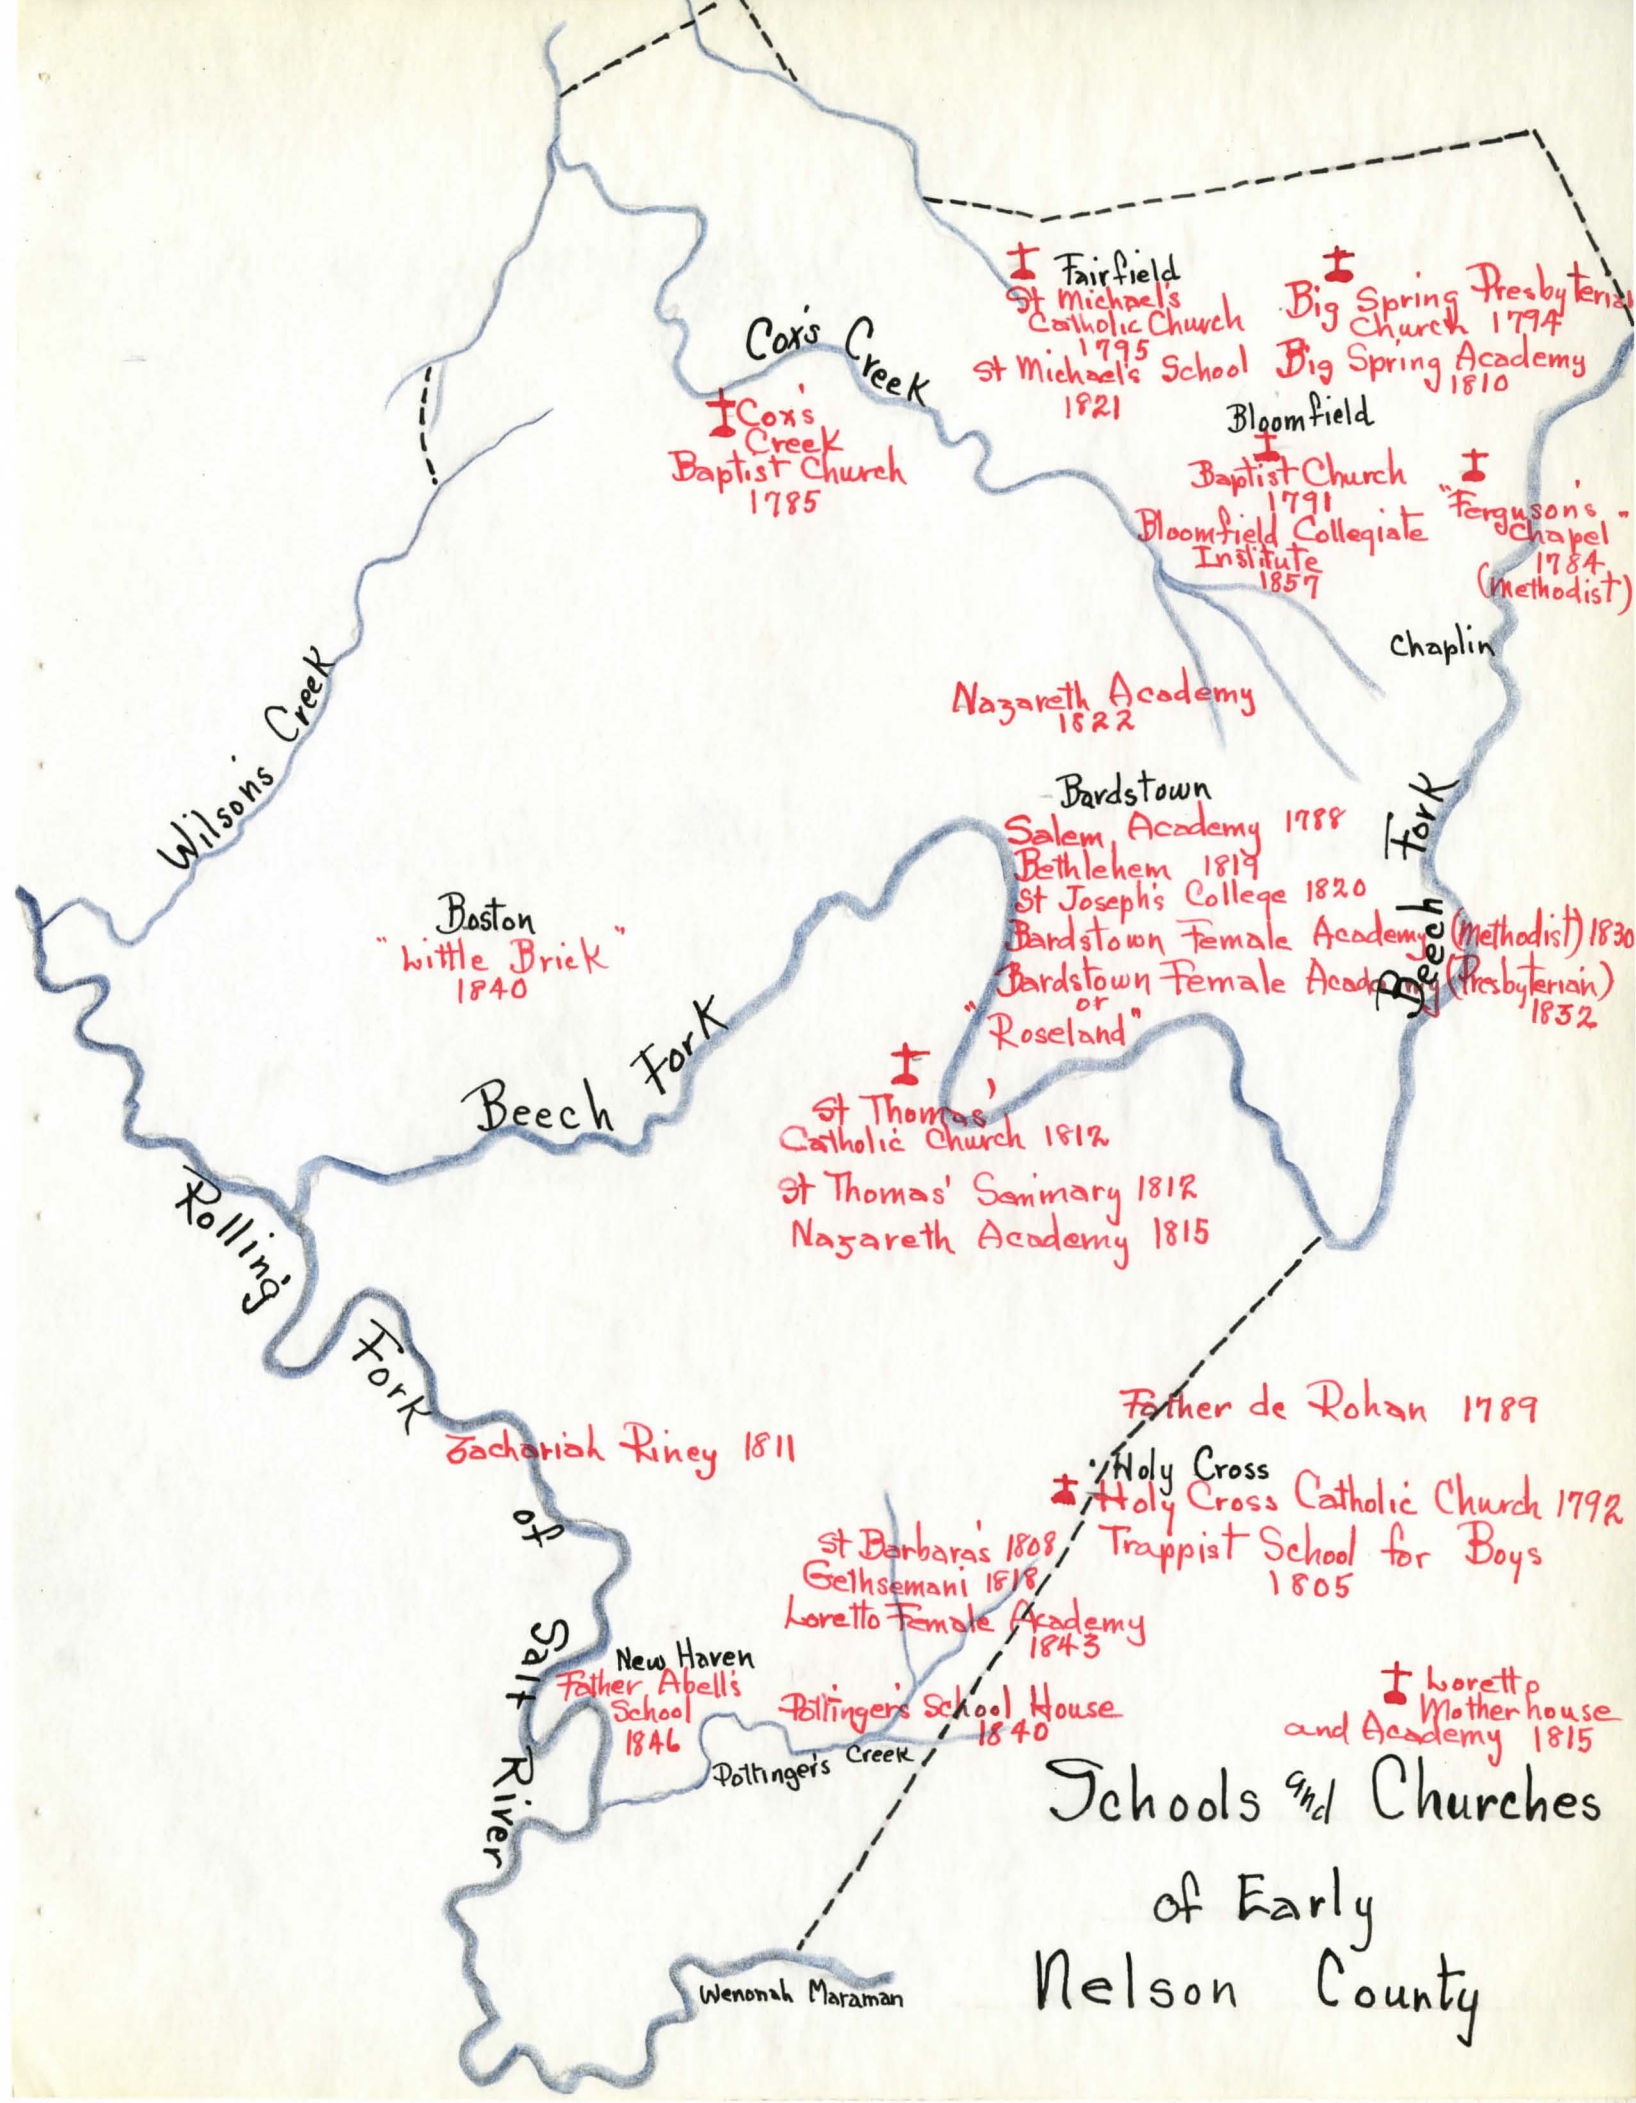 Fairfield
St Michael's
Catholic Church
1795
St Michael's School
1821
Big Spring Presbyterian
Church 1794
Big Spring Academy
1810
Cox's Creek
Cox's
Creek
Baptist Church
1785
Bloomfield
Baptist Church
1791
Bloomfield Collegiate
Institute
1857
"Ferguson's
Chapel"
1784
(Methodist)
Chaplin
Wilson's Creek
Nazareth Academy
1822
Bardstown
Salem Academy 1788
Bethlehem 1819
St Joseph's College 1820
Bardstown Female Academy (Methodist) 1830
Bardstown Female Academy (Presbyterian)
1832
or
"Roseland"
Beech Fork
Boston
"Little Brick"
1840
Beech Fork
St Thomas'
Catholic Church 1812
St Thomas' Seminary 1812
Nazareth Academy 1815
Rolling Fork of Salt River
Zachariah Riney 1811
Father de Rohan 1789
Holy Cross
Holy Cross Catholic Church 1792
Trappist School for Boys
1805
St Barbara's 1808
Gethsemani 1818
Loretto Female Academy
1843
New Haven
Father Abell's
School
1846
Pottinger's School House
1840
Pottinger's Creek
Loretto
Motherhouse
and Academy 1815
Schools and Churches
of Early
Nelson County
Wenonah Maraman